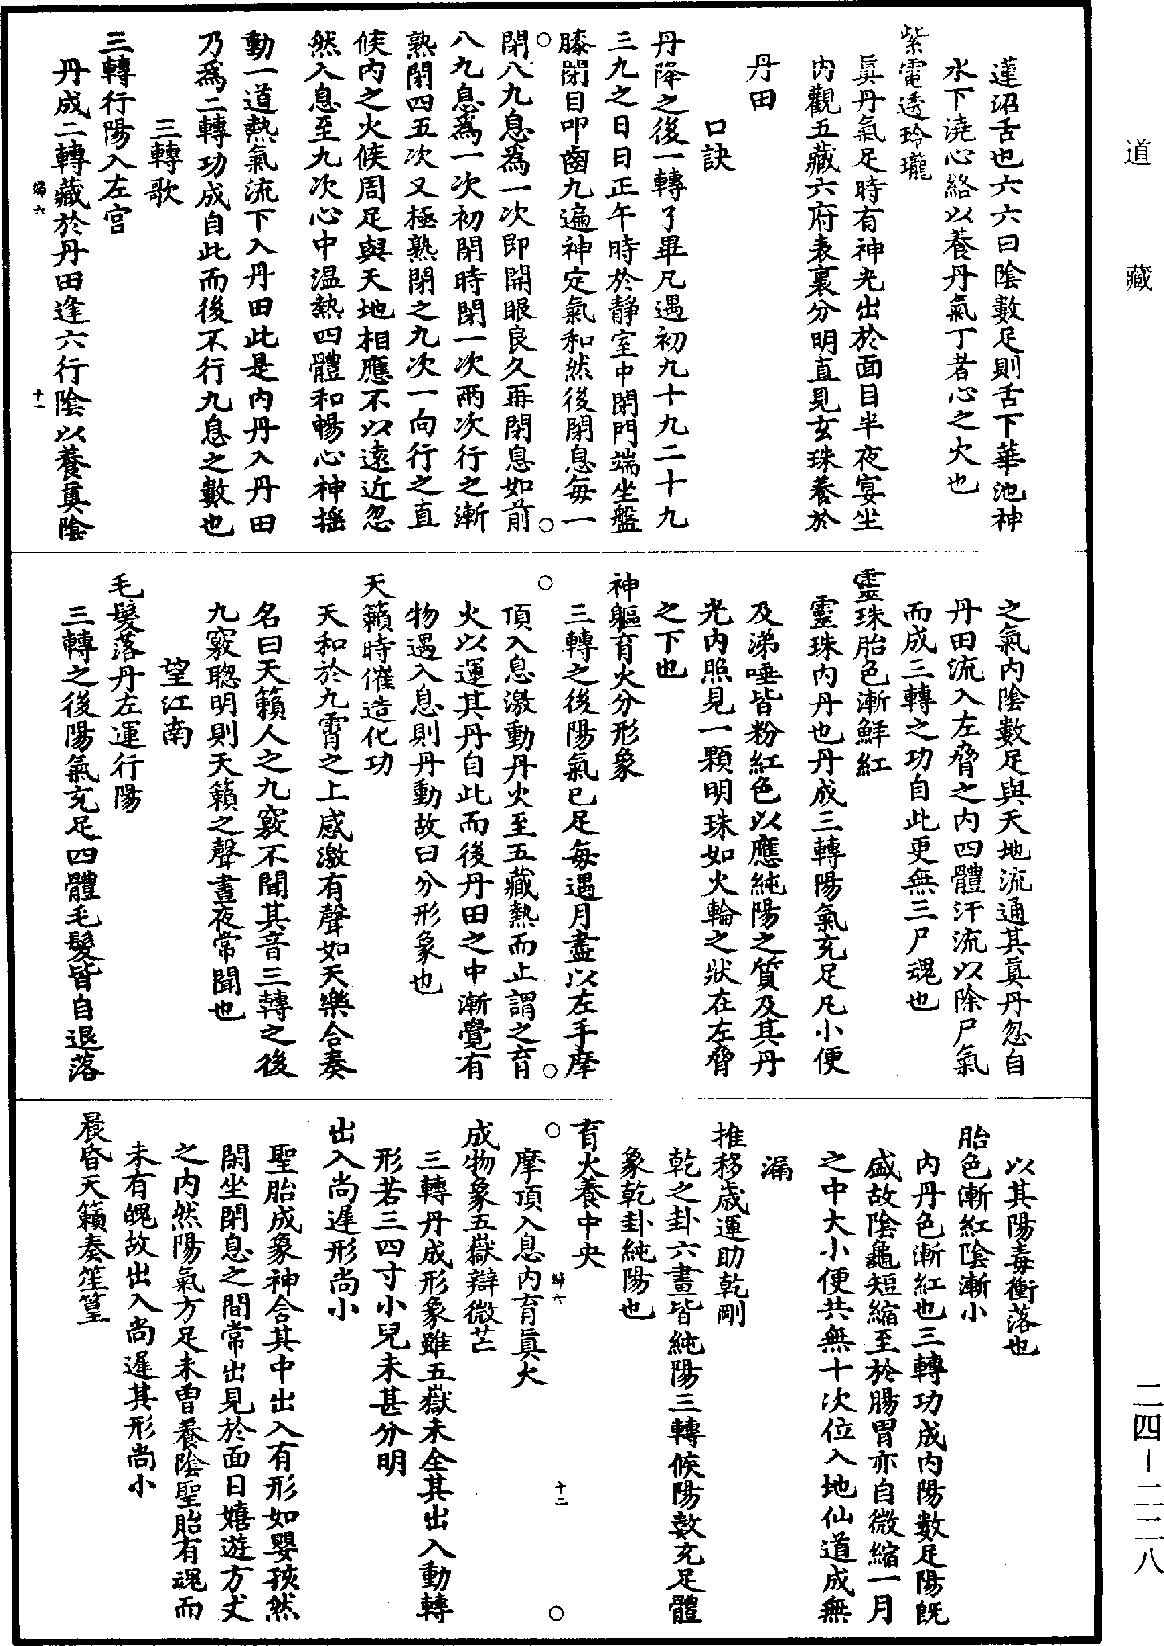 道藏
蓮沼舌也六六曰陰數足則舌下華池神
水下澆心絡以養丹氣丁者心之火也
紫電透玲瓏
真丹氣足時有神光出於面目半夜宴坐
內觀五藏六府表裏分明直見玄珠養於
丹田
口訣
丹降之後一轉了畢凡遇初九十九二十九
三九之日日正午時於靜室中閉門端坐盤
膝閉目叩齒九遍神定氣和然後閉息每一
閉八九息為一次即開眼良久再閉息如前
八九息為一次初閉時閉一次兩次行之漸
熟閉四五次又極熟閉之九次一向行之直
候內之火候周足與天地相應不以遠近忽
然入息至九次心中溫熱四體和暢心神搖
動一道熱氣流下入丹田此是內丹入丹田
乃為二轉功成自此而後不行九息之數也
三轉歌
三轉行陽入左宮
丹成二轉藏於丹田逢六行陰以養真陰
歸六
十一
之氣內陰數足與天地流通其真丹忽自
丹田流入左脅之內四體汗流以除尸氣
而成三轉之功自此更無三尸魂也
靈珠胎色漸鮮紅
靈珠內丹也丹成三轉陽氣充足凡小便
及涕唾皆粉紅色以應純陽之質及其丹
光內照見一顆明珠如火輪之狀在左脅
之下也
神軀育火分形象
三轉之後陽氣已足每遇月盡以左手摩
頂入息激動丹火至五藏熱而止謂之育
火以運其丹自此而後丹田之中漸覺有
物遇入息則丹動故曰分形象也
天籟時催造化功
天和於九霄之上感激有聲如天樂合奏
名曰天籟人之九竅不聞其音三轉之後
九竅聰明則天籟之聲晝夜常聞也
望江南
毛髮落丹左運行陽
三轉之後陽氣充足四體毛髮皆自退落
以其陽毒衝落也
胎色漸紅陰漸小
內丹色漸紅也三轉功成內陽數足陽既
盛故陰龜短縮至於腸胃亦自微縮一月
之中大小便共無十次位入地仙道成無
漏
推移歲運助乾剛
乾之卦六畫皆純陽三轉候陽數充足體
象乾卦純陽也
育火養中央
摩頂入息內育真火
歸六
十二
成物象五嶽辯微芒
三轉丹成形象雖五嶽未全其出入動轉
形若三四寸小兒未甚分明
出入尚遲形尚小
聖胎成象神合其中出入有形如嬰孩然
閑坐閉息之間常出見於面目嬉遊方丈
之內然陽氣方足未曾養陰聖胎有魂而
未有魄故出入尚遲其形尚小
晨昏天籟奏笙篁
二四-二二八